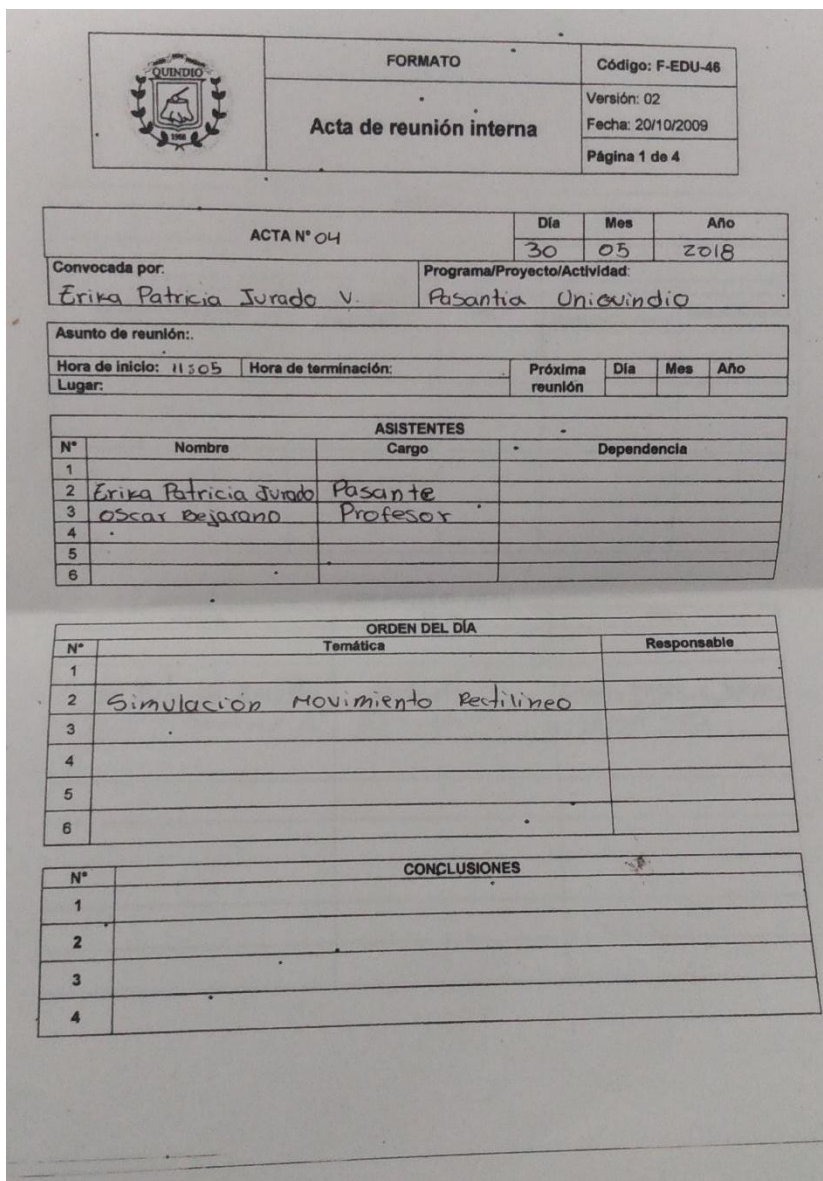 QUINDIO
1966
FORMATO
Acta de reunión interna
Código: F-EDU-46
Versión: 02
Fecha: 20/10/2009
Página 1 de 4
ACTA N° 04
Día Mes Año
30 05 2018
Convocada por: Programa/Proyecto/Actividad:
Erika Patricia Jurado V. Pasantia Uniquindio
Asunto de reunión:.
Hora de inicio: 11:05 Hora de terminación: Próxima reunión Día Mes Año
Lugar:
ASISTENTES
N° Nombre Cargo Dependencia
1
2 Erika Patricia Jurado Pasante
3 Oscar Bejarano Profesor
4
5
6
ORDEN DEL DÍA
N° Temática Responsable
1
2 Simulación Movimiento Rectilineo
3
4
5
6
N° CONCLUSIONES
1
2
3
4